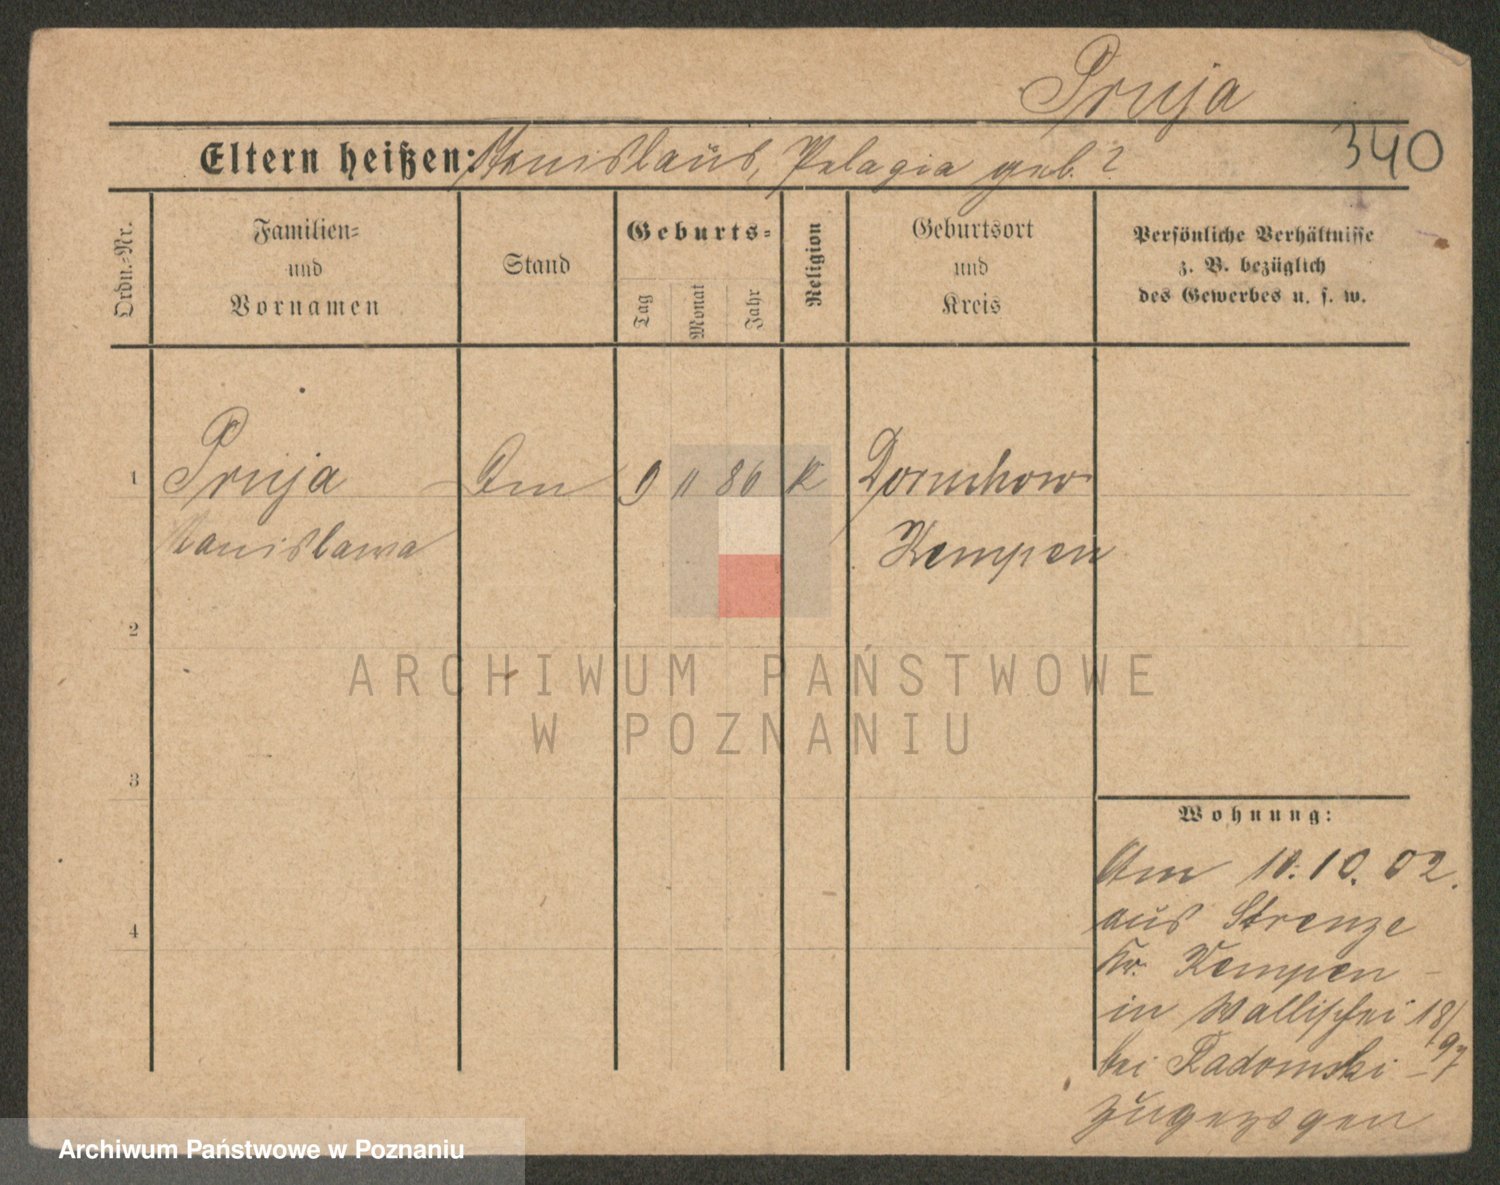 Pruja
340
Eltern heißen: Stanislaus, Pelagia geb. ?
Ordn.-Nr.
Familien-
und
Vornamen
Stand
Geburts-
Tag
Monat
Jahr
Religion
Geburtsort
und
Kreis
Persönliche Verhältnisse
z. B. bezüglich
des Gewerbes u. s. w.
1 Pruja 9 11 86 K Doruchow
Stanislawa Kempen
2
ARCHIWUM PAŃSTWOWE
W POZNANIU
3
Wohnung:
Am 10.10.02.
4
aus Strenze
Kr. Kempen -
in Wallischei 18/
bei Radomski - 97
zugezogen
Archiwum Państwowe w Poznaniu